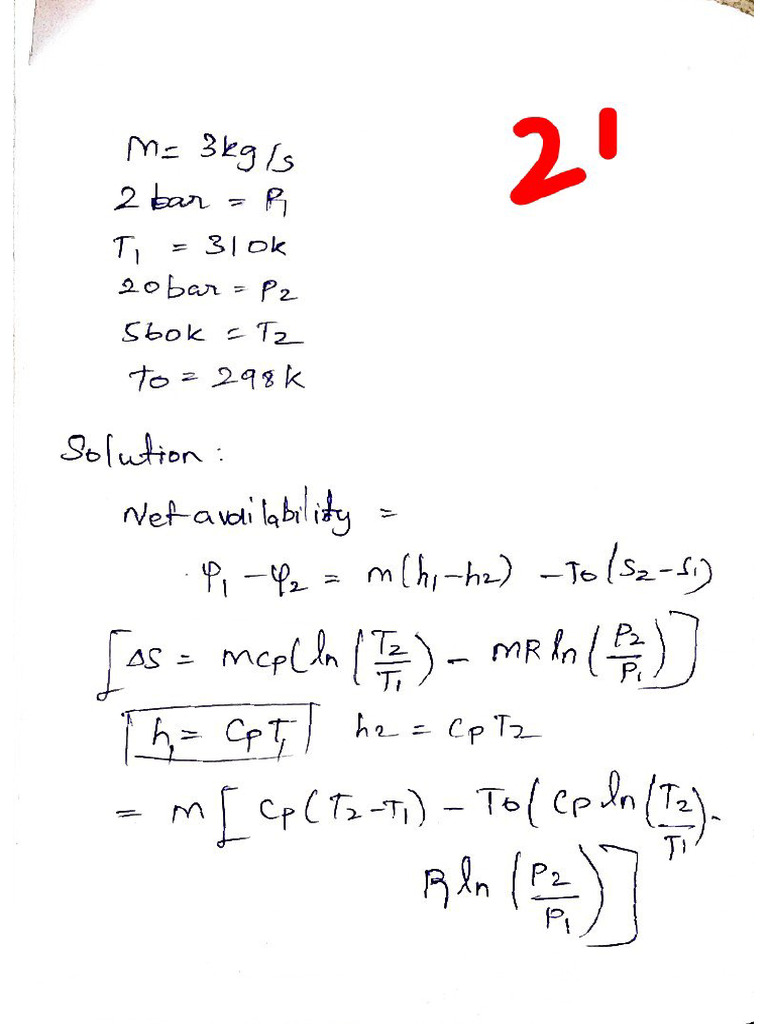 21
M= 3kg/s
2 bar = P1
T1 = 310k
20bar = P2
560k = T2
To = 298k
Solution:
Net availability =
φ1 - φ2 = m(h1-h2) - To(s2-s1)
[ΔS = mcp(ln(T2/T1) - MR ln(P2/P1)]
h1 = CpT1 h2 = CpT2
= m[Cp(T2-T1) - To(Cp ln(T2/T1) -
R ln(P2/P1)]